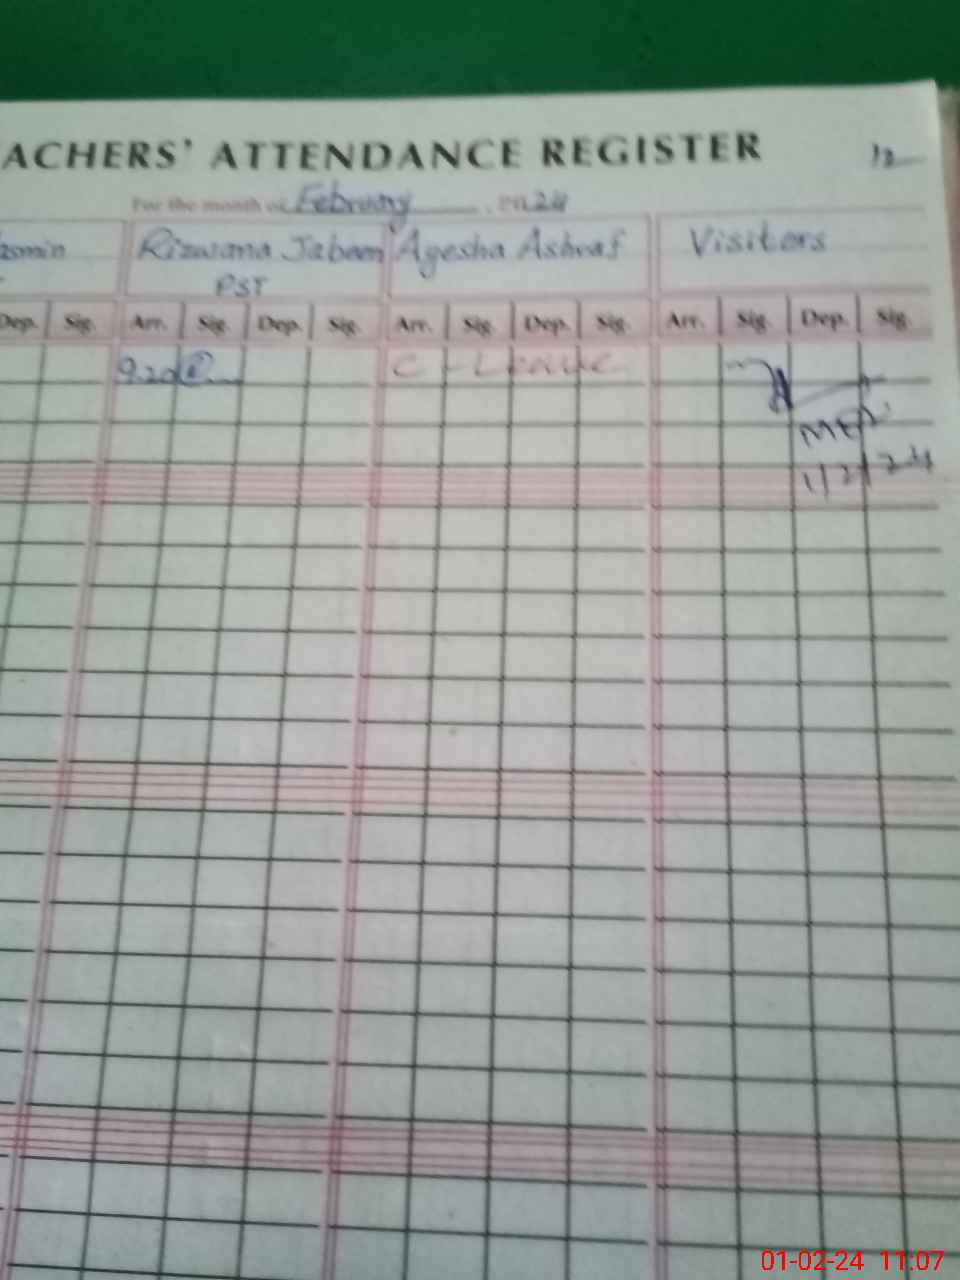 ACHERS' ATTENDANCE REGISTER
12
For the month of February 2024
asmin Rizwana Jabeen Ayesha Ashraf Visitors
PST
Dep. Sig. Arr. Sig. Dep. Sig. Arr. Sig. Dep. Sig. Arr. Sig. Dep. Sig.
9.20 C - Leave
1/2/24
01-02-24 11:07